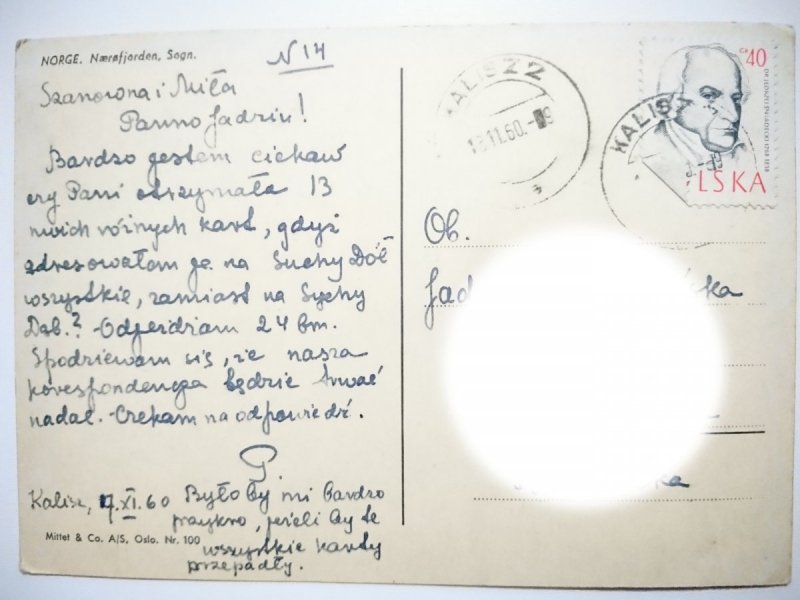 NORGE. Nærøfjorden, Sogn.
N 14
Szanowna i Miła
Panno Jadziu!
Bardzo jestem ciekaw
czy Pani otrzymała 13
moich różnych kart, gdyż
adresowałam je na Suchy Dół
wszystkie, zamiast na Suchy
Dąb? - Odjeżdżam 24 bm.
Spodziewam się, że nasza
korespondencja będzie trwać
nadal. - Czekam na odpowiedź.
Kalisz, 17.XI.60 Byłoby mi bardzo
przykro, jeżeli by te
wszystkie karty
przepadły.
Mittet & Co. A/S, Oslo. Nr. 100
KALISZ 2
11.60.
KALISZ
GR 40
LSKA
Ob.
Jad
ka
ka